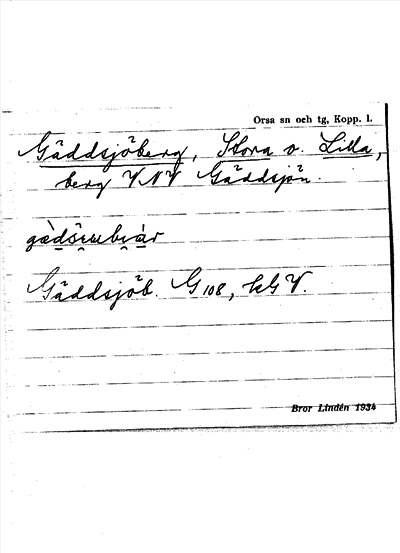 Orsa sn och tg, Kopp. l.
Gäddsjöberg, Stora o. Lilla,
berg VNV Gäddsjön.
Gäddsjöb. G108, kGV.
Bror Lindén 1934